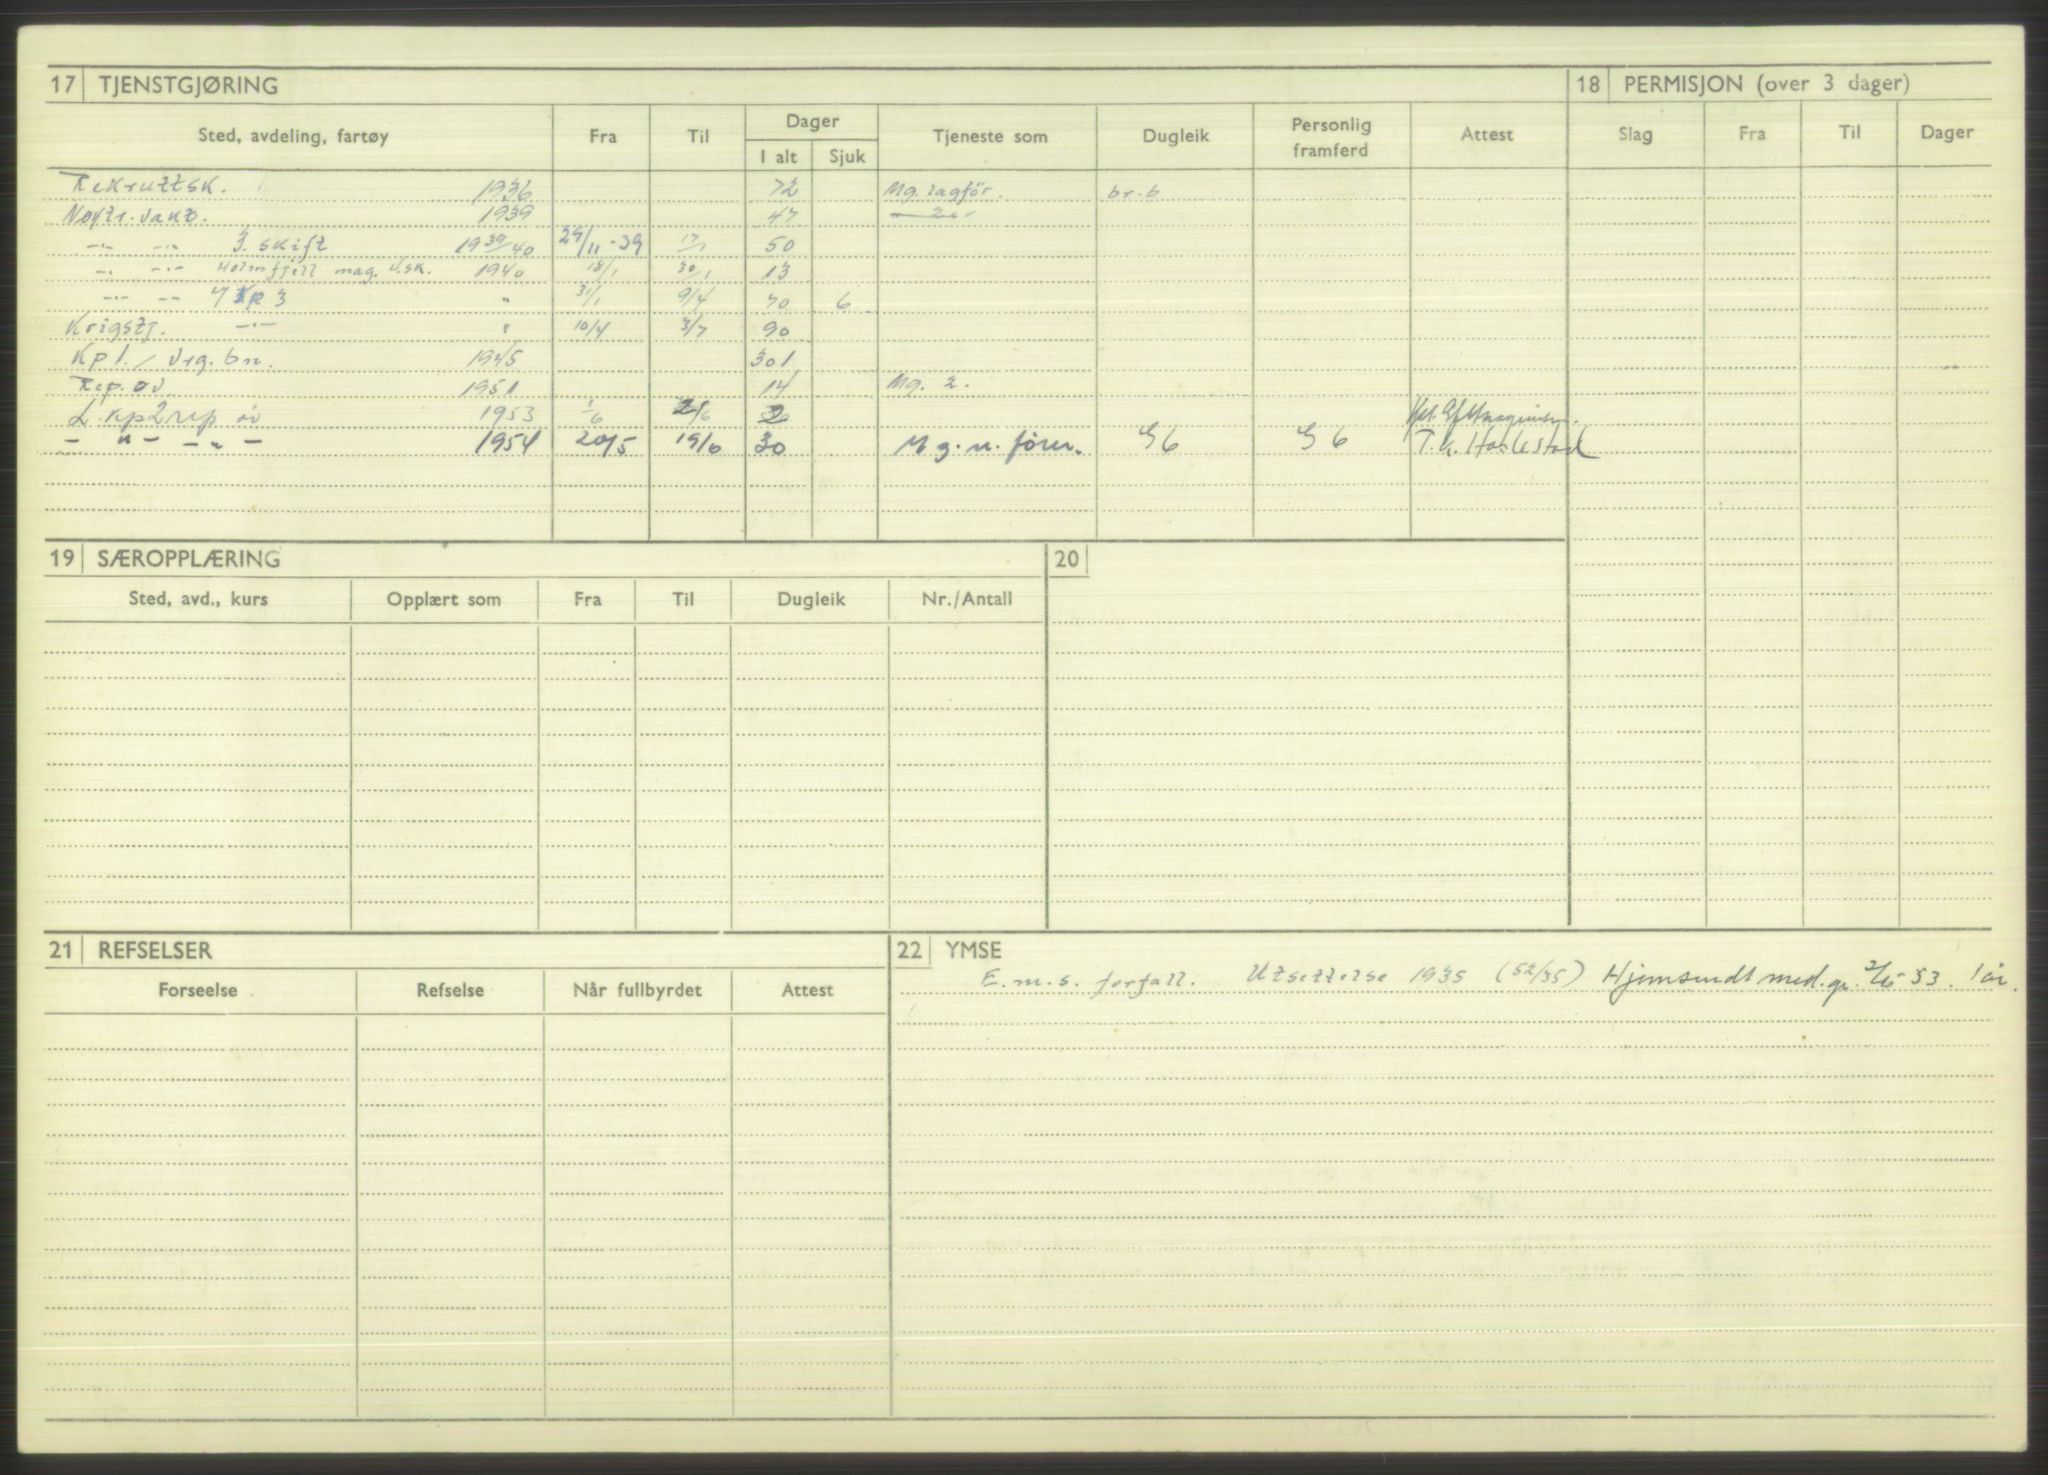 17 TJENSTGJØRING
18 PERMISJON (over 3 dager)
Sted, avdeling, fartøy Fra Til Dager Tjeneste som Dugleik Personlig framferd Attest Slag Fra Til Dager
I alt Sjuk
Rekruttsk. 1936 72 Mg. lagfør. br.b
Nøytr. vakt. 1939 47
-"- -"- 3. skift 1939/40 29/11-39 17/1 50
-"- -"- Holmfjell mag. v.sk. 1940 18/1 30/1 13
-"- -"- 3 " 31/1 9/4 70 6
Krigstj. -"- " 10/4 3/7 90
Kp 1. / Vrg. bn. 1945 301
Rep. øv. 1951 14 Mg. 2.
L. kp 2 rep øv 1953 1/6 2/6 2
- " - - " - 1954 20/5 19/6 30 Mg. n. fører. G6 G6 T. K.
19 SÆROPPLÆRING
20
Sted, avd., kurs Opplært som Fra Til Dugleik Nr./Antall
21 REFSELSER
22 YMSE
E.m.s. forfall. Utsettelse 1935 (52/35) Hjemsendt med. gr. 2/6-53. 1 år.
Forseelse Refselse Når fullbyrdet Attest